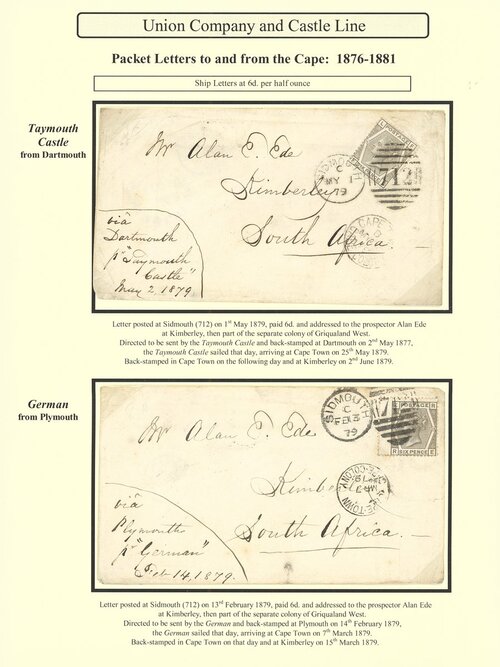 Union Company and Castle Line
Packet Letters to and from the Cape: 1876-1881
Ship Letters at 6d. per half ounce
Taymouth
Castle
from Dartmouth
Mr Alan E. Ede
Kimberley
South Africa.
via
Dartmouth
pr "Taymouth
Castle"
May 2, 1879
SIDMOUTH
C
MY 1
79
712
POSTAGE
CAPE
Letter posted at Sidmouth (712) on 1st May 1879, paid 6d. and addressed to the prospector Alan Ede
at Kimberley, then part of the separate colony of Griqualand West.
Directed to be sent by the Taymouth Castle and back-stamped at Dartmouth on 2nd May 1877,
the Taymouth Castle sailed that day, arriving at Cape Town on 25th May 1879.
Back-stamped in Cape Town on the following day and at Kimberley on 2nd June 1879.
German
from Plymouth
Mr Alan E. Ede
Kimberley
South Africa.
via
Plymouth
pr "German"
Feb 14, 1879.
SIDMOUTH
C
FE 13
79
POSTAGE
SIX PENCE
R E
CAPE-TOWN
CAPE-COLONY
Letter posted at Sidmouth (712) on 13rd February 1879, paid 6d. and addressed to the prospector Alan Ede
at Kimberley, then part of the separate colony of Griqualand West.
Directed to be sent by the German and back-stamped at Plymouth on 14th February 1879,
the German sailed that day, arriving at Cape Town on 7th March 1879.
Back-stamped in Cape Town on that day and at Kimberley on 15th March 1879.